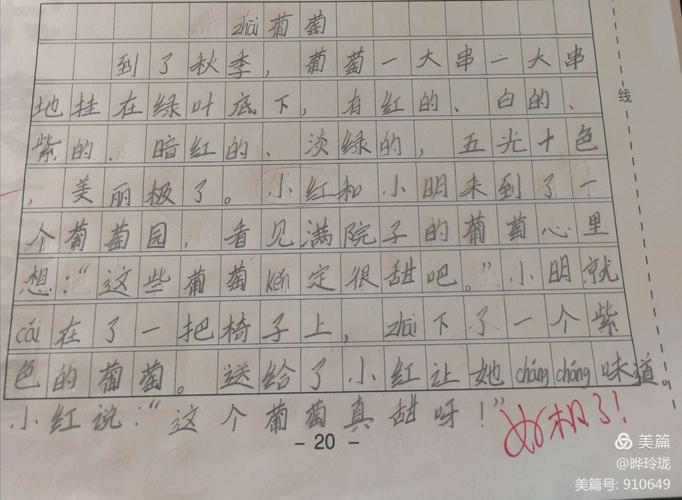 zhāi葡萄
到了秋季，葡萄一大串一大串
地挂在绿叶底下，有红的、白的、
紫的、暗红的、淡绿的，五光十色
，美丽极了。小红和小明来到了一
个葡萄园，看见满院子的葡萄心里
想：“这些葡萄kěn定很甜吧。”小明就
cǎi在了一把椅子上，zhāi下了一个紫
色的葡萄。送给了小红让她chángcháng味道。
小红说：“这个葡萄真甜呀！”
妙极了！
- 20 -
线
美篇
@晔玲珑
美篇号: 910649